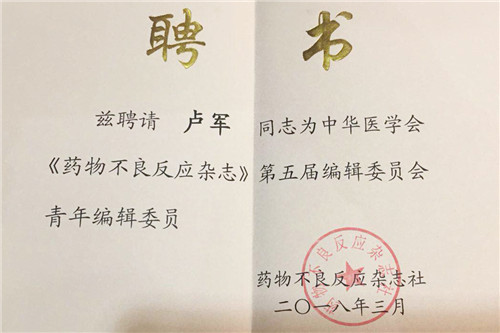 聘书
兹聘请 卢军 同志为中华医学会
《药物不良反应杂志》第五届编辑委员会
青年编辑委员
药物不良反应杂志社
药物不良反应杂志社
二〇一八年三月